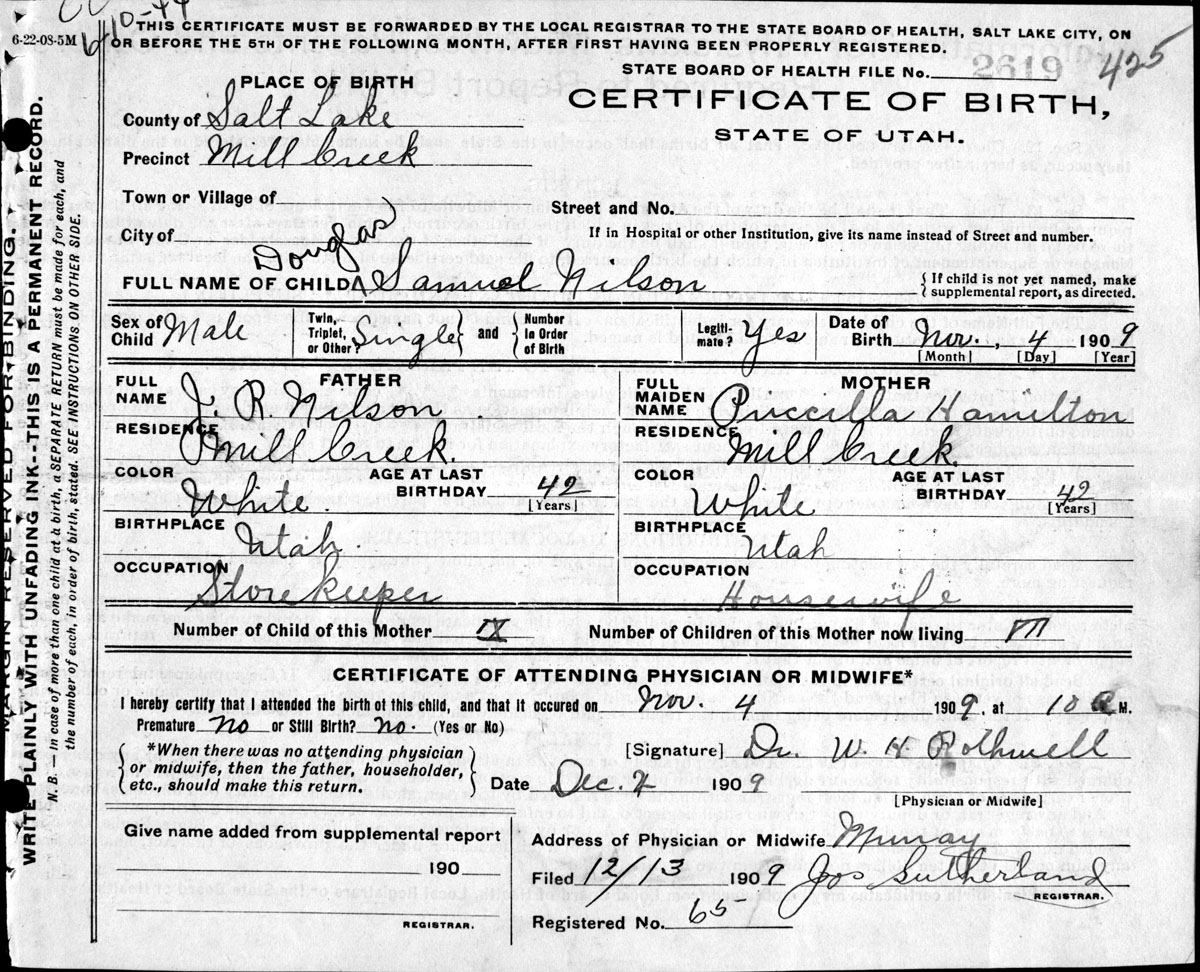 6-10-44
6-22-08-5M
THIS CERTIFICATE MUST BE FORWARDED BY THE LOCAL REGISTRAR TO THE STATE BOARD OF HEALTH, SALT LAKE CITY, ON
OR BEFORE THE 5TH OF THE FOLLOWING MONTH, AFTER FIRST HAVING BEEN PROPERLY REGISTERED.
STATE BOARD OF HEALTH FILE No. 2619 425
PLACE OF BIRTH
CERTIFICATE OF BIRTH,
STATE OF UTAH.
County of Salt Lake
Precinct Mill Creek
Town or Village of
Street and No.
City of
If in Hospital or other Institution, give its name instead of Street and number.
Douglas
FULL NAME OF CHILD Samuel Nilson
{If child is not yet named, make
supplemental report, as directed.
Sex of Child Male
Twin, Triplet, or Other? Single and Number in Order of Birth
Legiti-mate? Yes
Date of Birth Nov., 4 1909
[Month] [Day] [Year]
FATHER
FULL NAME J. R. Nilson
RESIDENCE Mill Creek.
COLOR White.
AGE AT LAST BIRTHDAY 42
[Years]
BIRTHPLACE Utah.
OCCUPATION Storekeeper
MOTHER
FULL MAIDEN NAME Puccilla Hamilton
RESIDENCE Mill Creek.
COLOR White
AGE AT LAST BIRTHDAY 42
[Years]
BIRTHPLACE Utah
OCCUPATION Housewife
Number of Child of this Mother IX Number of Children of this Mother now living VII
CERTIFICATE OF ATTENDING PHYSICIAN OR MIDWIFE*
I hereby certify that I attended the birth of this child, and that it occured on Nov. 4 1909, at 10 A M.
Premature No or Still Birth? No. (Yes or No)
*When there was no attending physician
or midwife, then the father, householder,
etc., should make this return.
[Signature] Dr. W. H. Rothwell
Date Dec. 2 1909
[Physician or Midwife]
Give name added from supplemental report
190
REGISTRAR.
Address of Physician or Midwife Murray
Filed 12/13 1909 Jos Sutherland
REGISTRAR.
Registered No. 65
MARGIN RESERVED FOR BINDING.
WRITE PLAINLY WITH UNFADING INK--THIS IS A PERMANENT RECORD.
B. — In case of more than one child at a birth, a SEPARATE RETURN must be made for each, and
the number of each, in order of birth, stated. SEE INSTRUCTIONS ON OTHER SIDE.